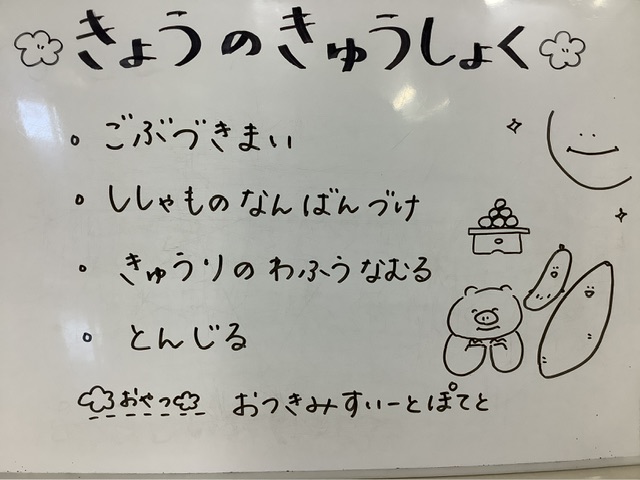 きょうのきゅうしょく
ごぶづきまい
ししゃものなんばんづけ
きゅうりのわふうなむる
とんじる
おやつ おつきみすいーとぽてと